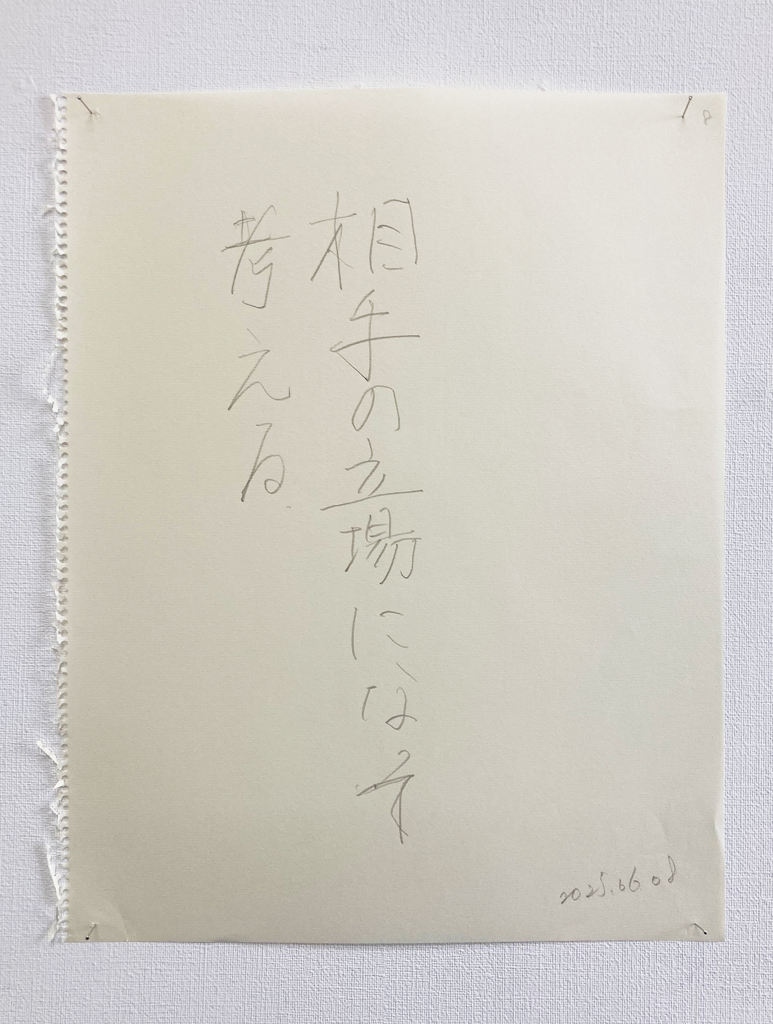 8
相手の立場にな
考える
2025.06.08